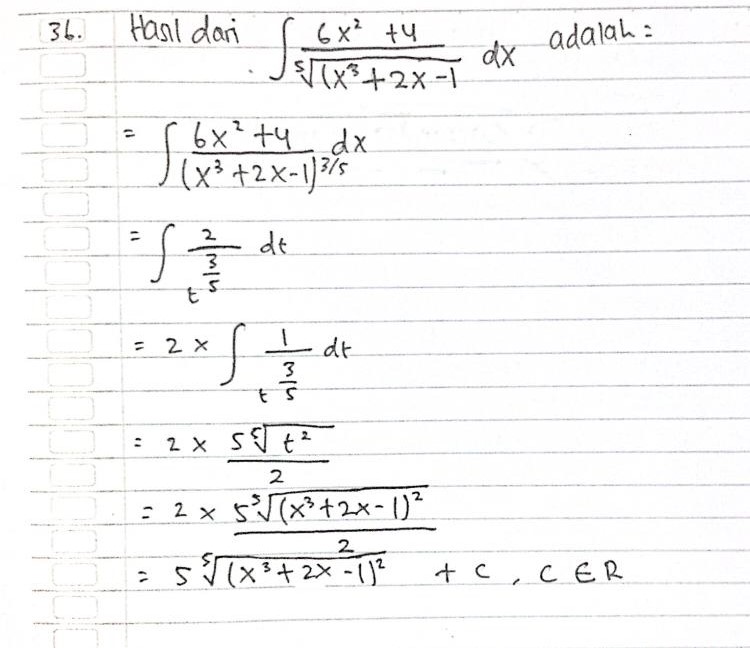 36. Hasil dari ∫ (6x² + 4) / ⁵√(x³ + 2x - 1 dx adalah =
= ∫ (6x² + 4) / (x³ + 2x - 1)^3/5 dx
= ∫ 2 / t^(3/5) dt
= 2 × ∫ 1 / t^(3/5) dt
= 2 × 5 ⁵√t² / 2
= 2 × 5 ⁵√(x³ + 2x - 1)² / 2
= 5 ⁵√(x³ + 2x - 1)² + C, C ∈ R